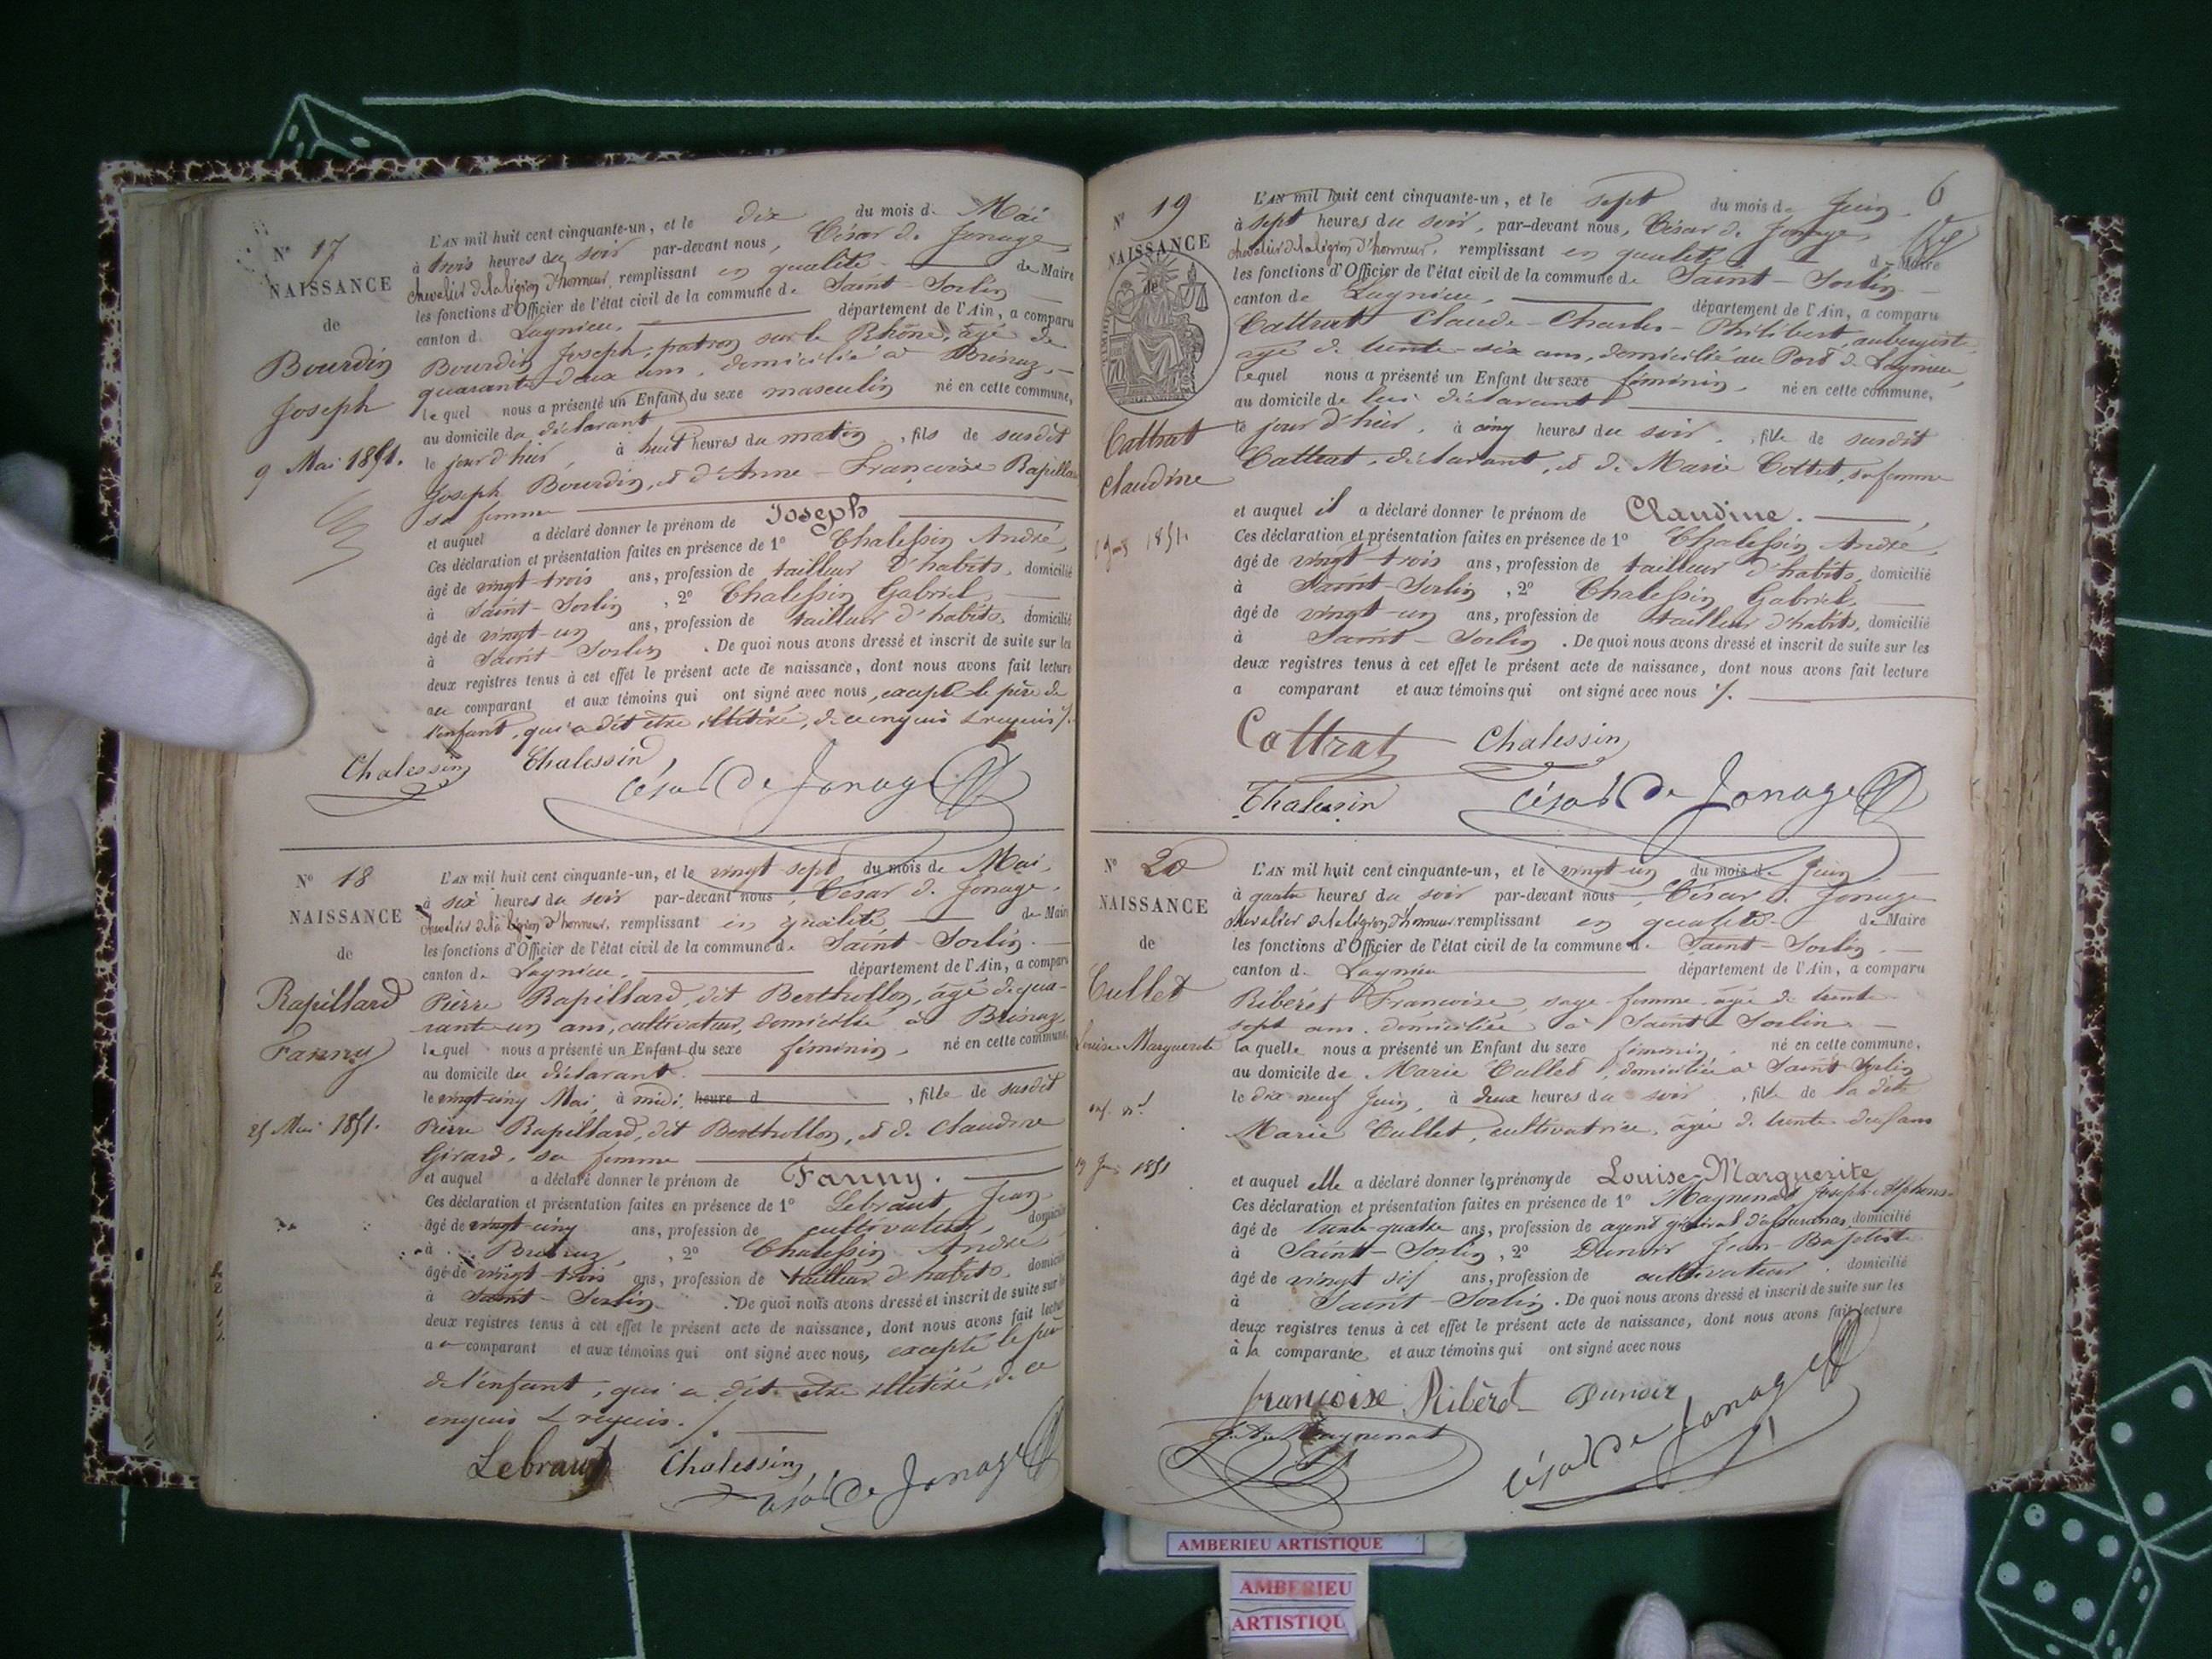 N° 17
NAISSANCE
de
Bourdin
Joseph
9 Mai 1851.
L'AN mil huit cent cinquante-un, et le dix du mois de Mai
à trois heures du soir par-devant nous, César de Jonage,
chevalier de la légion d'honneur, remplissant en qualité de Maire
les fonctions d'Officier de l'état civil de la commune de Saint-Sorlin
canton de Lagnieu, département de l'Ain, a comparu
Bourdin Joseph, patron sur le Rhône, âgé de
quarante-deux ans, domicilié à
lequel nous a présenté un Enfant du sexe masculin né en cette commune,
au domicile du déclarant
le jour d'hier, à huit heures du matin, fils de susdit
Joseph Bourdin, et d'Anne-Françoise
sa femme
et auquel a déclaré donner le prénom de Joseph
Ces déclaration et présentation faites en présence de 1° Chalessin André,
âgé de vingt-trois ans, profession de tailleur d'habits, domicilié
à Saint-Sorlin, 2° Chalessin Gabriel,
âgé de vingt-un ans, profession de tailleur d'habits, domicilié
à Saint-Sorlin. De quoi nous avons dressé et inscrit de suite sur les
deux registres tenus à cet effet le présent acte de naissance, dont nous avons fait lecture
au comparant et aux témoins qui ont signé avec nous, excepté le père de
l'enfant, qui a dit être illétiré, de ce enquis & requis ./.
Chalessin Chalessin César De Jonage
N° 18
NAISSANCE
de
Rapillard
Fanny
25 Mai 1851.
L'AN mil huit cent cinquante-un, et le vingt sept du mois de Mai,
à six heures du soir par-devant nous, César de Jonage,
chevalier de la légion d'honneur, remplissant en qualité de Maire
les fonctions d'Officier de l'état civil de la commune de Saint-Sorlin
canton de Lagnieu, département de l'Ain, a comparu
Pierre Rapillard, dit Berthollon, âgé de qua-
rante-un ans, cultivateur, domicilié à
lequel nous a présenté un Enfant du sexe féminin, né en cette commune,
au domicile du déclarant.
le vingt-cinq Mai, à midi, heure d, fille de susdit
Pierre Rapillard, dit Berthollon, et de Claudine
Girard, sa femme
et auquel a déclaré donner le prénom de Fanny.
Ces déclaration et présentation faites en présence de 1° Lebraut Jean
âgé de vingt-cinq ans, profession de cultivateur, domicilié
à, 2° Chalessin André
âgé de vingt-trois ans, profession de tailleur d'habits, domicilié
à Saint-Sorlin. De quoi nous avons dressé et inscrit de suite sur les
deux registres tenus à cet effet le présent acte de naissance, dont nous avons fait lecture
au comparant et aux témoins qui ont signé avec nous, excepté le père
de l'enfant, qui a dit être illétiré, de ce
enquis & requis./.
Lebraut Chalessin César De Jonage
6
N° 19
NAISSANCE
de
Cattrat
Claudine
1851.
L'AN mil huit cent cinquante-un, et le sept du mois de Juin
à sept heures du soir, par-devant nous, César de Jonage,
chevalier de la légion d'honneur, remplissant en qualité de Maire
les fonctions d'Officier de l'état civil de la commune de Saint-Sorlin
canton de Lagnieu, département de l'Ain, a comparu
Cattrat Claude-Charles-Philibert, aubergiste
âgé de trente-six ans, domicilié au Port de Lagnieu,
lequel nous a présenté un Enfant du sexe féminin, né en cette commune,
au domicile de lui déclarant
le jour d'hier, à cinq heures du soir, fille de susdit
Cattrat, déclarant, et de Marie Cottet, sa femme
et auquel il a déclaré donner le prénom de Claudine.
Ces déclaration et présentation faites en présence de 1° Chalessin André,
âgé de vingt-trois ans, profession de tailleur d'habits, domicilié
à Saint-Sorlin, 2° Chalessin Gabriel,
âgé de vingt-un ans, profession de tailleur d'habits, domicilié
à Saint-Sorlin. De quoi nous avons dressé et inscrit de suite sur les
deux registres tenus à cet effet le présent acte de naissance, dont nous avons fait lecture
a comparant et aux témoins qui ont signé avec nous ./.
Cattrat Chalessin
Chalessin César De Jonage
N° 20
NAISSANCE
de
Cullet
Louise-Marguerite
enf. nl
19 Juin 1851
L'AN mil huit cent cinquante-un, et le vingt-un du mois de Juin
à quatre heures du soir par-devant nous, César de Jonage
chevalier de la légion d'honneur remplissant en qualité de Maire
les fonctions d'Officier de l'état civil de la commune de Saint-Sorlin,
canton de Lagnieu département de l'Ain, a comparu
Ribérot Françoise, sage-femme âgée de trente
sept ans, domiciliée à Saint-Sorlin
laquelle nous a présenté un Enfant du sexe féminin, né en cette commune,
au domicile de Marie Cullet, domiciliée à Saint-Sorlin
le dix neuf Juin, à deux heures du soir, fille de la dite
Marie Cullet, cultivatrice, âgée de trente-deux ans
et auquel elle a déclaré donner les prénoms de Louise-Marguerite
Ces déclaration et présentation faites en présence de 1° Magnenat Joseph-Alphonse
âgé de trente-quatre ans, profession de agent général d'assurances, domicilié
à Saint-Sorlin, 2° Dunoir Jean-Baptiste
âgé de vingt six ans, profession de cultivateur domicilié
à Saint-Sorlin. De quoi nous avons dressé et inscrit de suite sur les
deux registres tenus à cet effet le présent acte de naissance, dont nous avons fait lecture
à la comparante et aux témoins qui ont signé avec nous
françoise Ribérot Dunoir
J. A. Magnenat César De Jonage
AMBERIEU ARTISTIQUE
AMBERIEU
ARTISTIQU